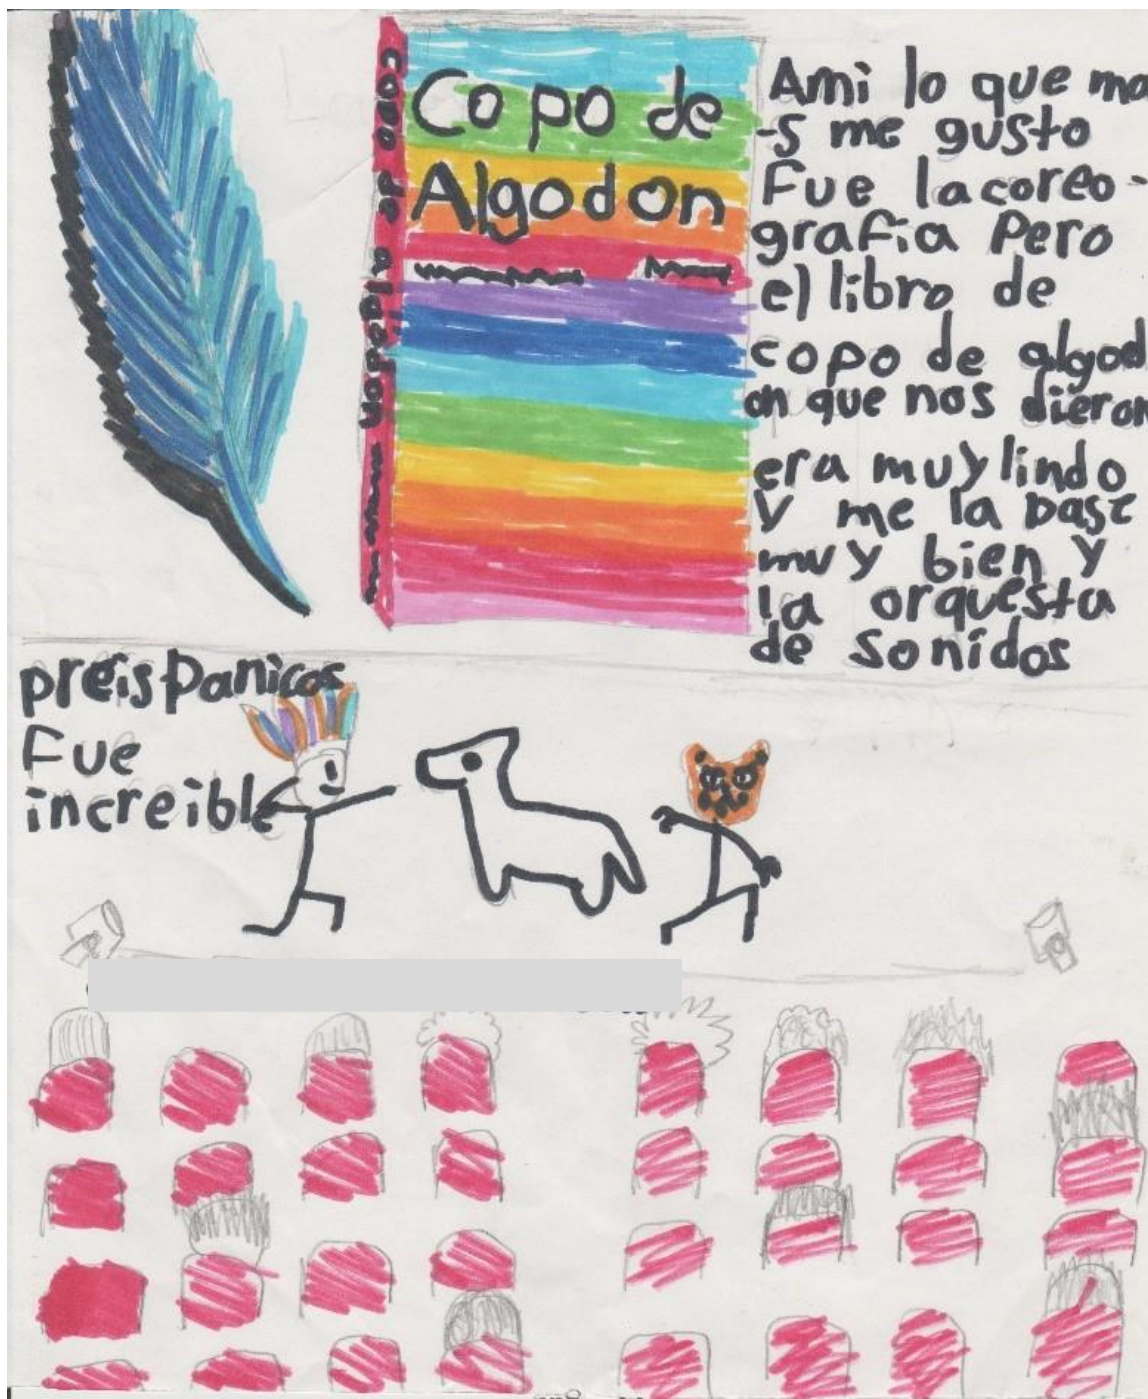 Copo de
Algodon
copo de algodon
Ami lo que ma
-s me gusto
Fue lacoreo-
grafia Pero
el libro de
copo de algod
on que nos dieron
era muy lindo
y me la pase
muy bien y
la orquesta
de sonidos
preispanicos
Fue
increible